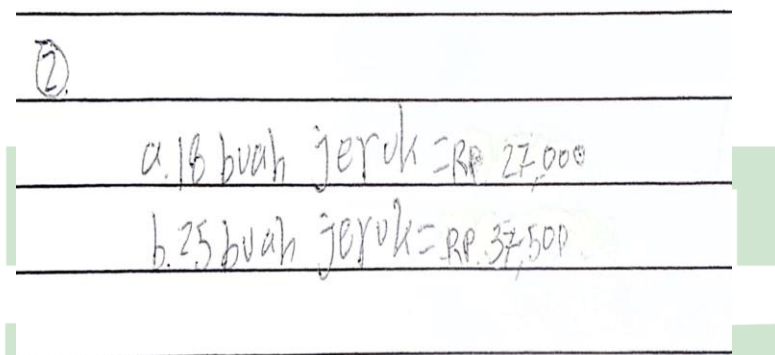 2.
a. 18 buah jeruk = RP. 27,000
b. 25 buah jeruk = RP. 37,500